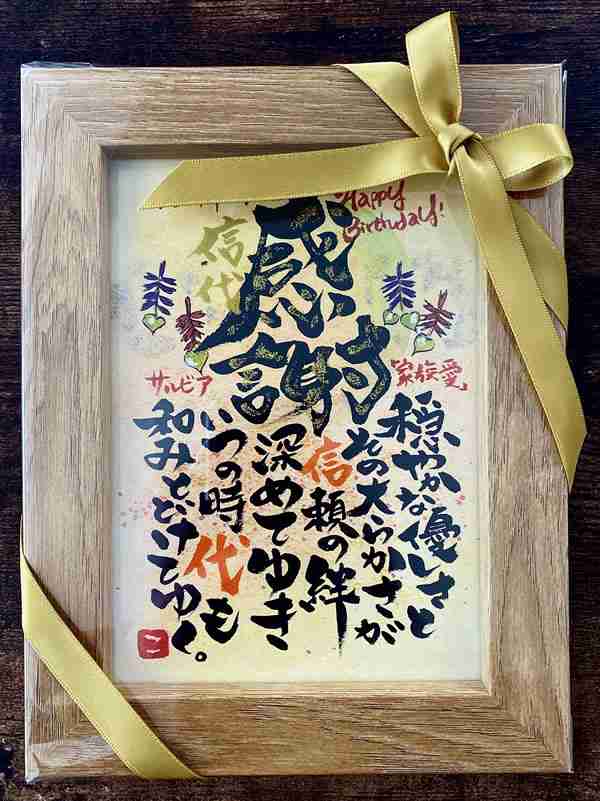 Happy
Birthday!
感謝
信代
家族愛
サルビア
穏やかな優しさと
その大らかさが
信頼の絆
深めてゆき
いつの時代も
和みとどけてゆく。
こ